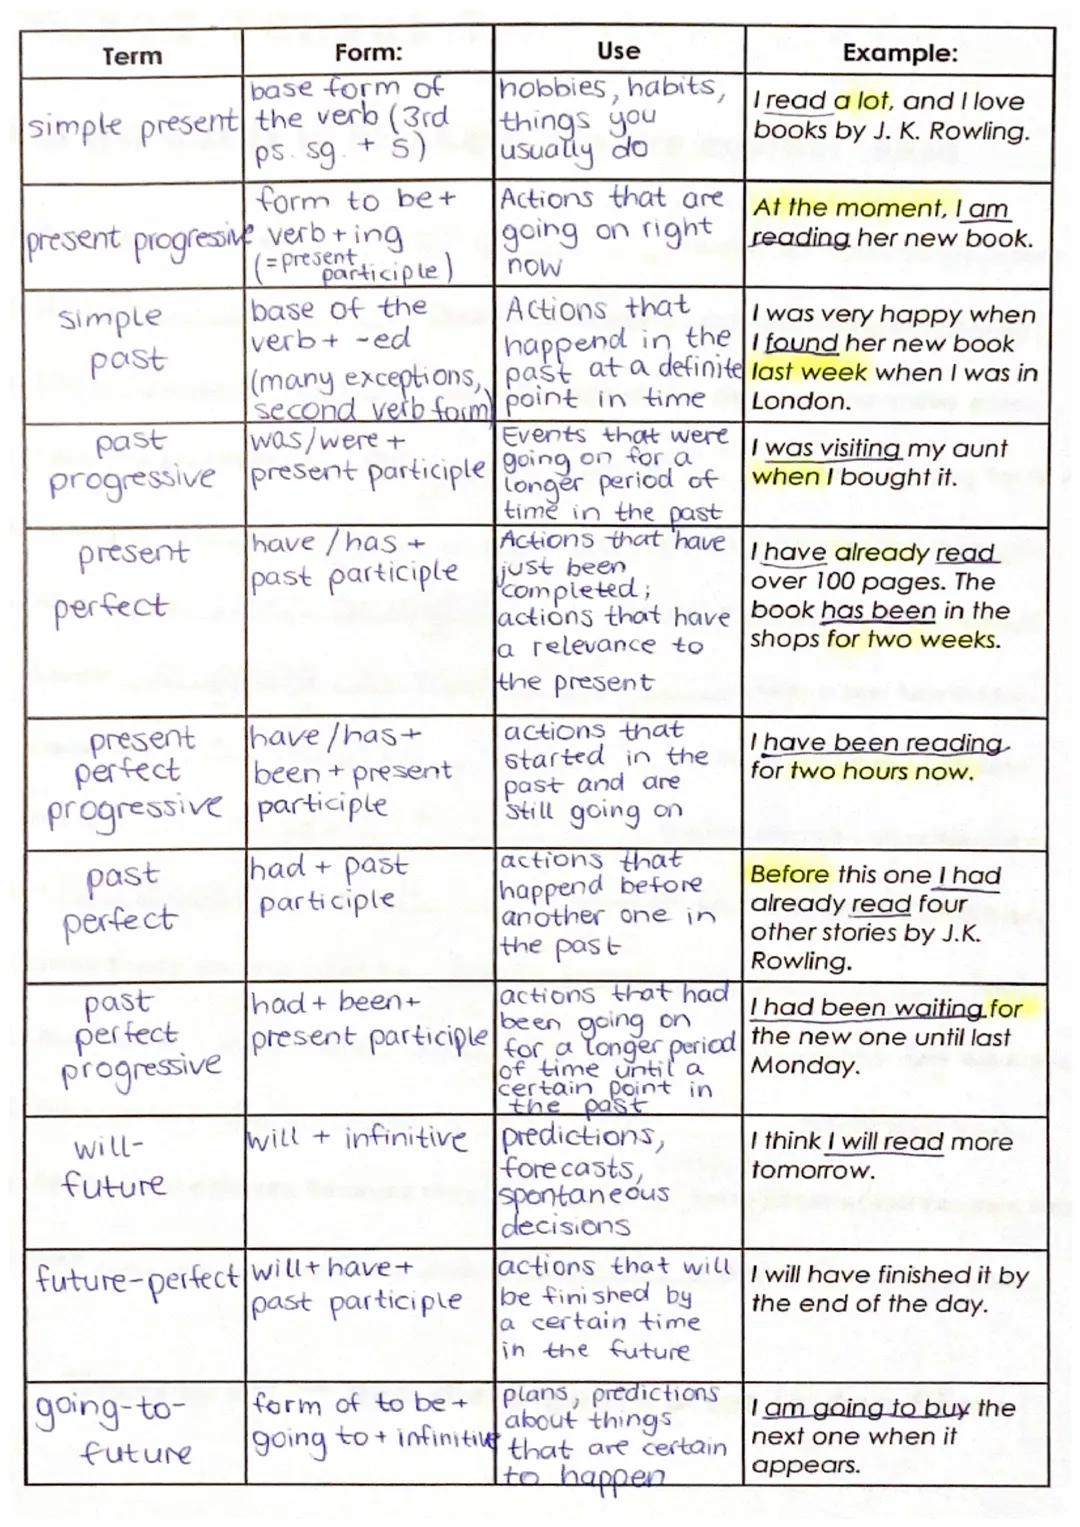 Term
Form:
Use
Example:
simple present
base form of
the verb (3rd
ps. sg. + s)
hobbies, habits,
things you
usually do
I read a lot, and I love
books by J. K. Rowling.
present progressive
form to be +
verb + ing
(= present
participle)
Actions that are
going on right
now
At the moment, I am
reading her new book.
simple
past
base of the
verb + -ed
(many exceptions,
second verb form)
Actions that
happend in the
past at a definite
point in time
I was very happy when
I found her new book
last week when I was in
London.
past
progressive
was/were +
present participle
Events that were
going on for a
longer period of
time in the past
I was visiting my aunt
when I bought it.
present
perfect
have / has +
past participle
Actions that have
just been
completed;
actions that have
a relevance to
the present
I have already read
over 100 pages. The
book has been in the
shops for two weeks.
present
perfect
progressive
have / has +
been + present
participle
actions that
started in the
past and are
still going on
I have been reading
for two hours now.
past
perfect
had + past
participle
actions that
happend before
another one in
the past
Before this one I had
already read four
other stories by J.K.
Rowling.
past
perfect
progressive
had + been +
present participle
actions that had
been going on
for a longer period
of time until a
certain point in
the past
I had been waiting for
the new one until last
Monday.
will-
future
will + infinitive
predictions,
forecasts,
spontaneous
decisions
I think I will read more
tomorrow.
future-perfect
will + have +
past participle
actions that will
be finished by
a certain time
in the future
I will have finished it by
the end of the day.
going-to-
future
form of to be +
going to + infinitive
plans, predictions
about things
that are certain
to happen
I am going to buy the
next one when it
appears.